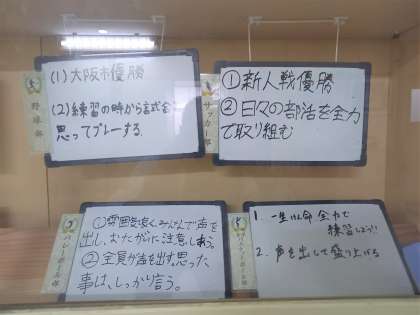 野球部
(1) 大阪市優勝
(2) 練習の時から試合を
思ってプレーする
サッカー部
① 新人戦優勝
② 日々の部活を全力
で取り組む
バレーボール部
① 雰囲気良くみんなで声を
出し、おたがいに注意しあう。
② 全員が声を出す。思った
事は、しっかり言う。
1. 一生けん命 全力で
練習しよう!!
2. 声を出して盛り上げる